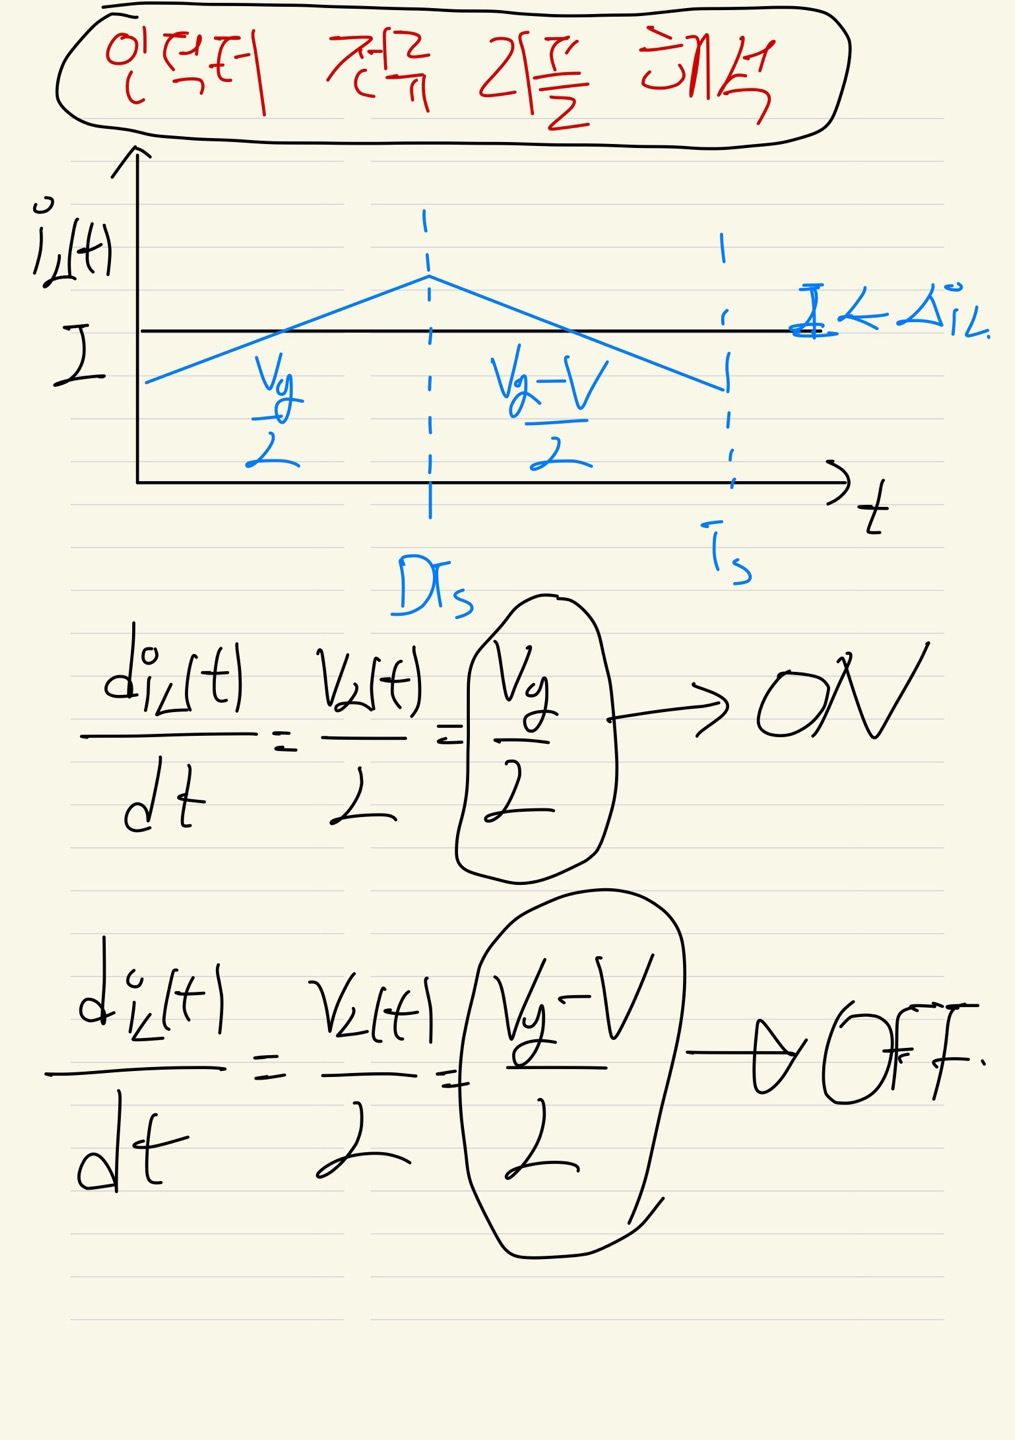 인덕터 전류 리플 해석
i_L(t)
I
I < Δi_L.
Vg/L
Vg-V/L
t
DTs
Ts
di_L(t)/dt = V_L(t)/L = Vg/L → ON
di_L(t)/dt = V_L(t)/L = Vg-V/L → OFF.